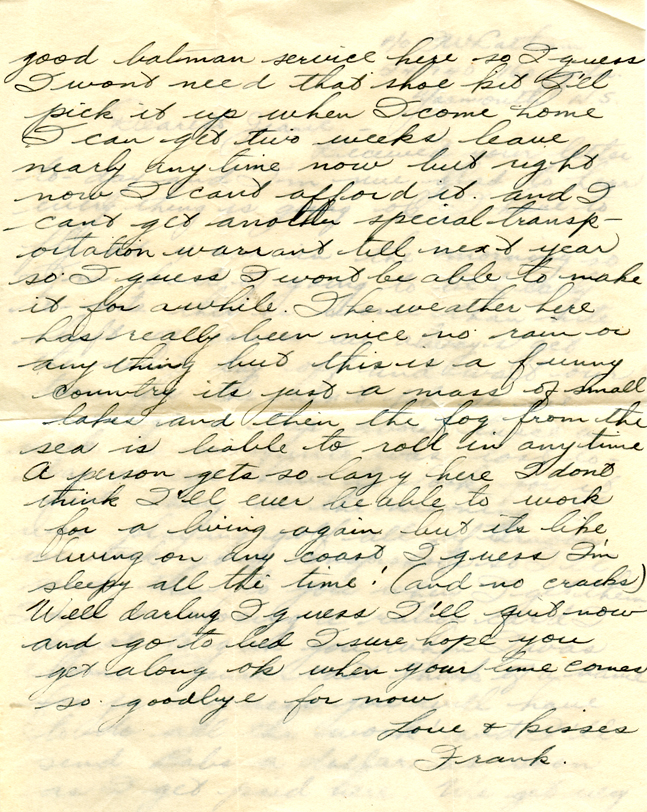 good batman service here so I guess
I wont need that shoe kit I'll
pick it up when I come home
I can get two weeks leave
nearly anytime now but right
now I cant afford it. and I
cant get another special transp-
ortation warrant till next year
so I guess I wont be able to make
it for awhile. The weather here
has really been nice no rain or
anything but this is a funny
country its just a mass of small
lakes and then the fog from the
sea is liable to roll in anytime
A person gets so lazy here I dont
think I'll ever be able to work
for a living again but its like
living on any coast I guess I'm
sleepy all the time! (and no cracks)
Well darling I guess I'll quit now
and go to bed I sure hope you
get along ok when your time comes
so goodbye for now
Love & kisses
Frank.